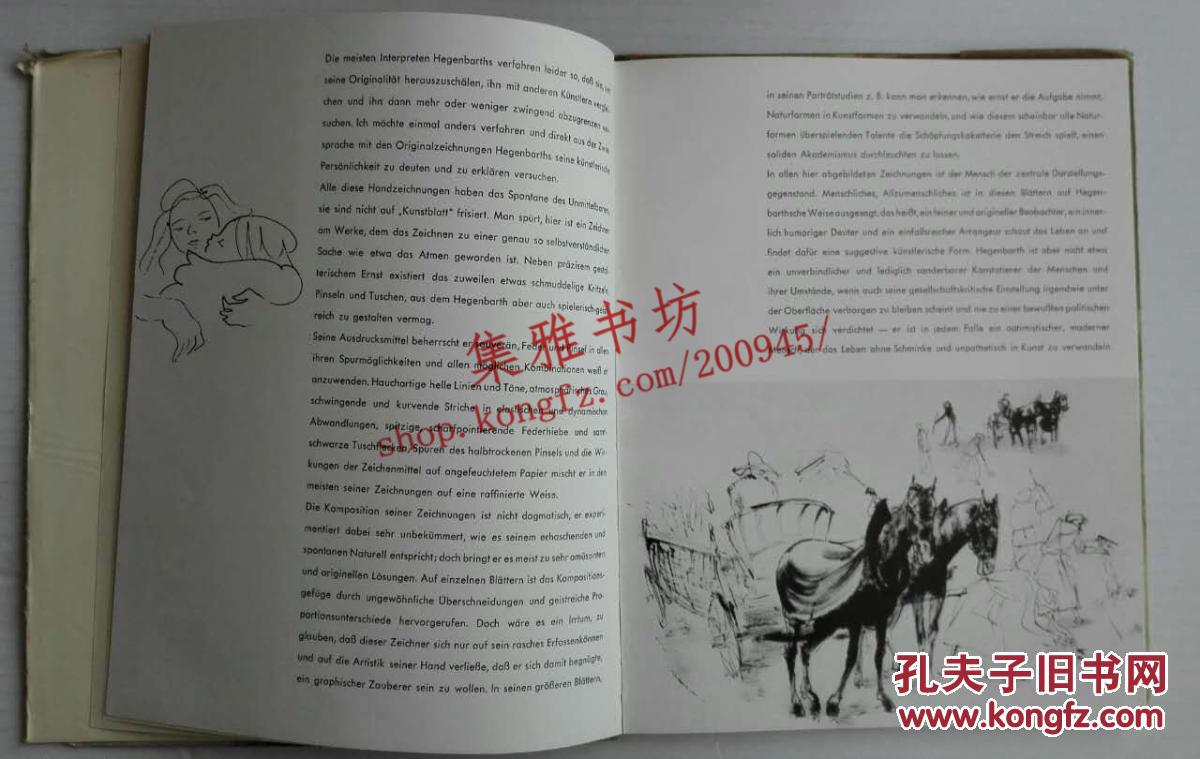 Die meisten Interpreten Hegenbarths verfahren leider so, daß sie, um
seine Originalität herauszuschälen, ihn mit anderen Künstlern verglei-
chen und ihn dann mehr oder weniger zwingend abzugrenzen ver-
suchen. Ich möchte einmal anders verfahren und direkt aus der Zwie-
sprache mit den Originalzeichnungen Hegenbarths seine künstlerische
Persönlichkeit zu deuten und zu erklären versuchen.
Alle diese Handzeichnungen haben das Spontane des Unmittelbaren,
sie sind nicht auf „Kunstblatt" frisiert. Man spürt, hier ist ein Zeichner
am Werke, dem das Zeichnen zu einer genau so selbstverständlichen
Sache wie etwa das Atmen geworden ist. Neben präzisem gestal-
terischem Ernst existiert das zuweilen etwas schmuddelige Kritzeln,
Pinseln und Tuschen, aus dem Hegenbarth aber auch spielerisch-geist-
reich zu gestalten vermag.
Seine Ausdrucksmittel beherrscht er souverän, Feder und Pinsel in allen
ihren Spurmöglichkeiten und allen möglichen Kombinationen weiß er
anzuwenden. Hauchartige helle Linien und Töne, atmosphärisches Grau,
schwingende und kurvende Striche in elastischen und dynamischen
Abwandlungen, spitzige, scharfpointierende Federhiebe und samt-
schwarze Tuschflecken, Spuren des halbtrockenen Pinsels und die Wir-
kungen der Zeichenmittel auf angefeuchtetem Papier mischt er in den
meisten seiner Zeichnungen auf eine raffinierte Weise.
Die Komposition seiner Zeichnungen ist nicht dogmatisch, er experi-
mentiert dabei sehr unbekümmert, wie es seinem erhaschenden und
spontanen Naturell entspricht; doch bringt er es meist zu sehr amüsanten
und originellen Lösungen. Auf einzelnen Blättern ist das Kompositions-
gefüge durch ungewöhnliche Überschneidungen und geistreiche Pro-
portionsunterschiede hervorgerufen. Doch wäre es ein Irrtum, zu
glauben, daß dieser Zeichner sich nur auf sein rasches Erfassenkönnen
und auf die Artistik seiner Hand verließe, daß er sich damit begnügte,
ein graphischer Zauberer sein zu wollen. In seinen größeren Blättern,
in seinen Porträtstudien z. B. kann man erkennen, wie ernst er die Aufgabe nimmt,
Naturformen in Kunstformen zu verwandeln, und wie diesem scheinbar alle Natur-
formen überspielenden Talente die Schöpfungskoketterie den Streich spielt, einen
soliden Akademismus durchleuchten zu lassen.
In allen hier abgebildeten Zeichnungen ist der Mensch der zentrale Darstellungs-
gegenstand. Menschliches, Allzumenschliches ist in diesen Blättern auf Hegen-
barthsche Weise ausgesagt, das heißt, ein feiner und origineller Beobachter, ein inner-
lich humoriger Deuter und ein einfallsreicher Arrangeur schaut das Leben an und
findet dafür eine suggestive künstlerische Form. Hegenbarth ist aber nicht etwa
ein unverbindlicher und lediglich sonderbarer Konstatierer der Menschen und
ihrer Umstände, wenn auch seine gesellschaftskritische Einstellung irgendwie unter
der Oberfläche verborgen zu bleiben scheint und nie zu einer bewußten politischen
Wirkung sich verdichtet — er ist in jedem Falle ein optimistischer, moderner
Mensch, der das Leben ohne Schminke und unpathetisch in Kunst zu verwandeln
集雅书坊
shop.kongfz.com/200945/
孔夫子旧书网
www.kongfz.com